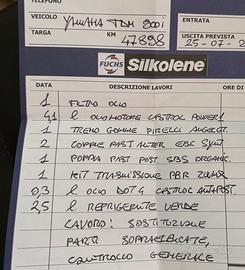 TELEFONO
VEICOLO YAMAHA TDM 900i
ENTRATA
TARGA KM 47898
USCITA PREVISTA
25-07-2
FUCHS Silkolene
DATA DESCRIZIONE LAVORI ORE DI
1 FILTRO OLIO
4,1 l OLIO MOTORE CASTROL POWER1
1 TRENO GOMME PIRELLI ANGEL GT
2 COPPIE PAST ANTER EBC SINT
1 COPPIA PAST POST. SBS ORGANIC.
1 KIT TRASMISSIONE PBR
0,3 l OLIO DOT4 CASTROL ANT+POST
2,5 l REFRIGERANTE VERDE
LAVORO: SOSTITUZIONE
PARTI SOPRAELENCATE,
CONTROLLO GENERALE